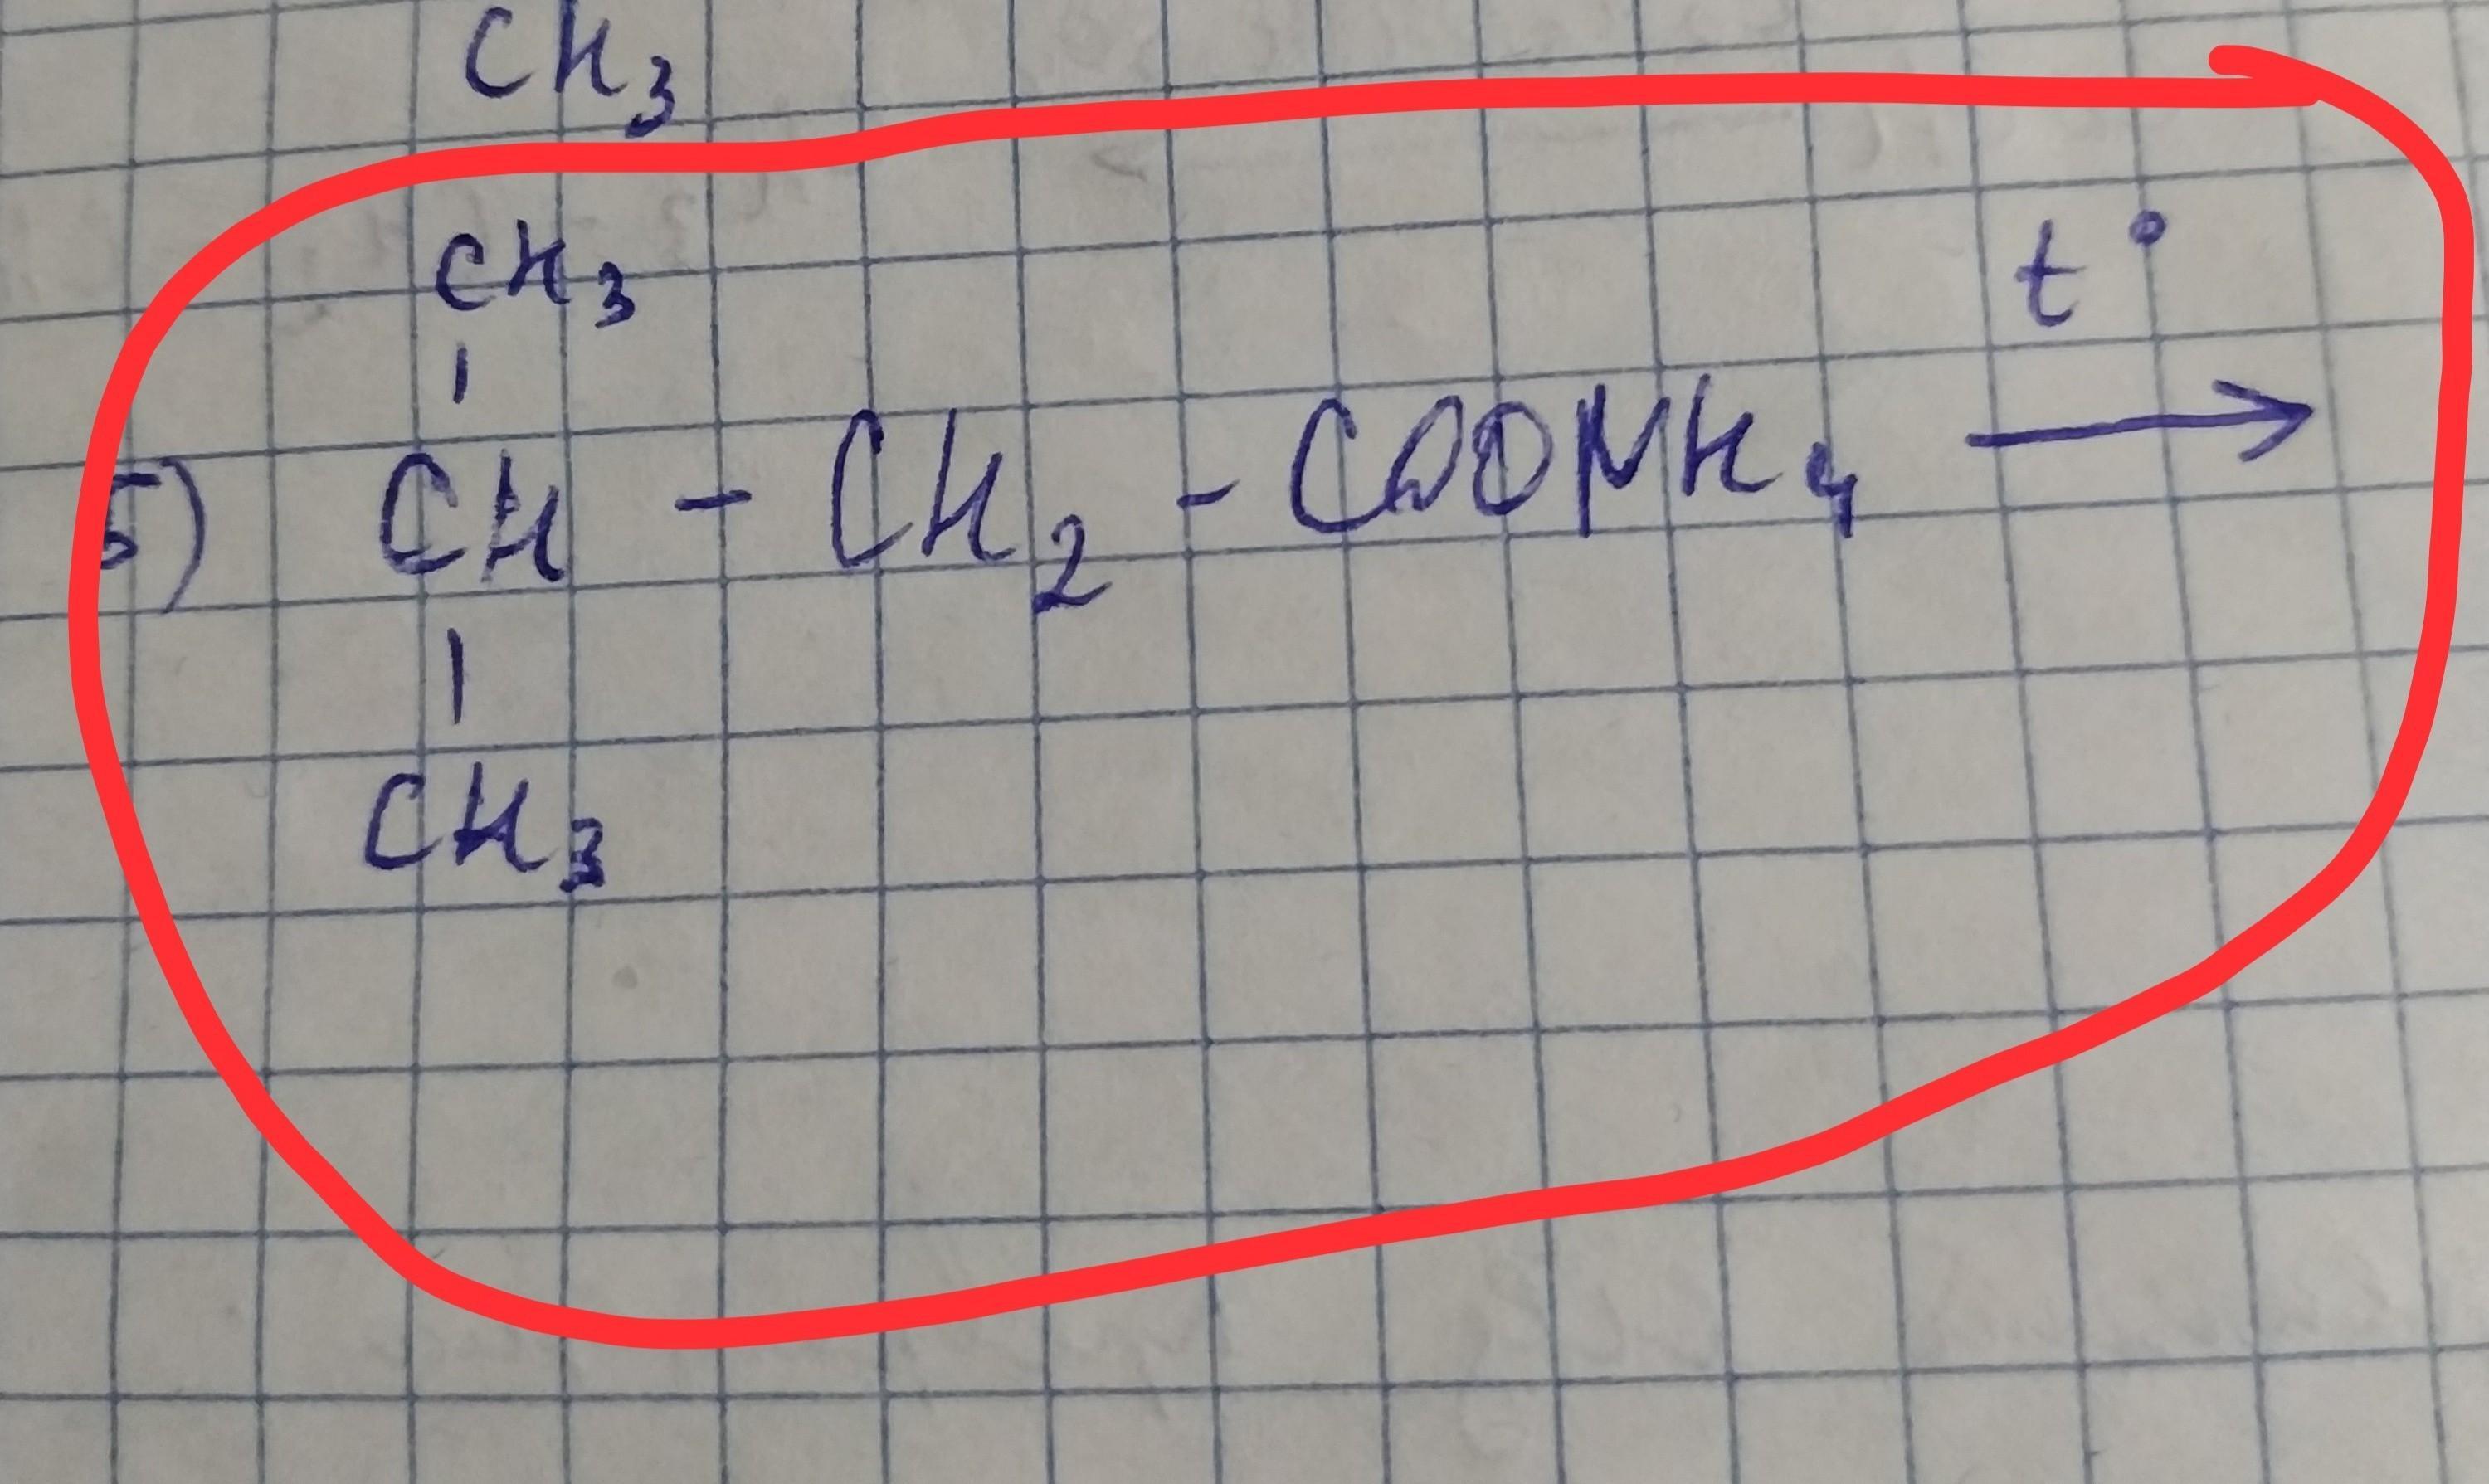 CH3
CH3
t°
5) CH - CH2 - COONH4 →
CH3